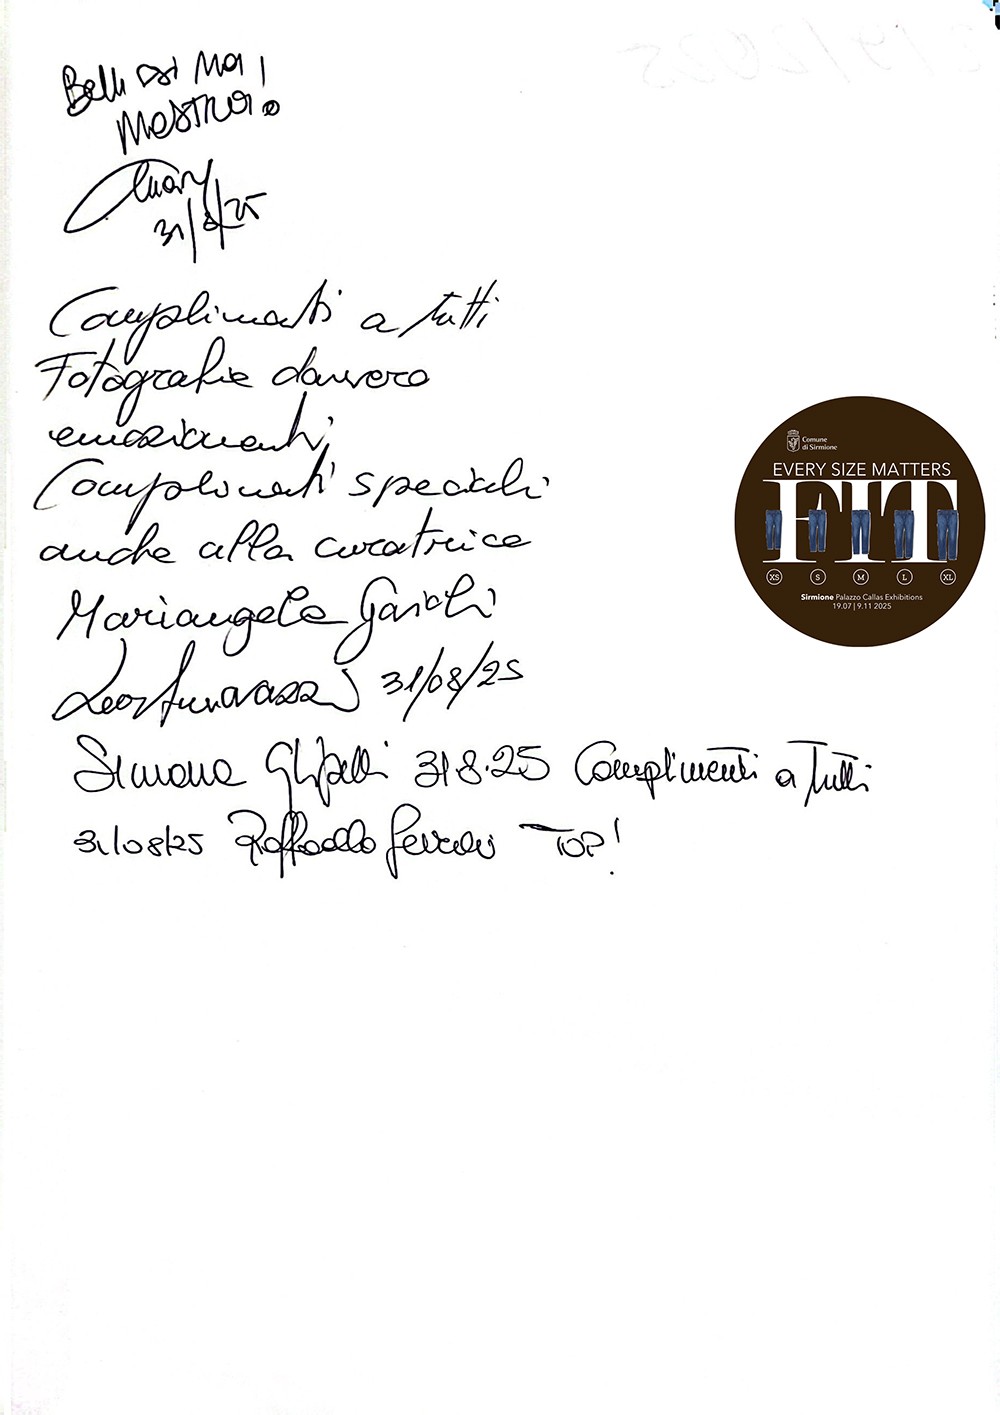 Bellissima!
Mostra!
31/8/25
Complimenti a tutti
Fotografie davvero
emozionanti,
Complimenti speciali
anche alla curatrice
Mariangela
31/08/25
Simona 31.8.25 Complimenti a Tutti
31/08/25 Raffaello Ferrari TOP!
Comune
di Sirmione
EVERY SIZE MATTERS
FIT
XS S M L XL
Sirmione Palazzo Callas Exhibitions
19.07 | 9.11 2025